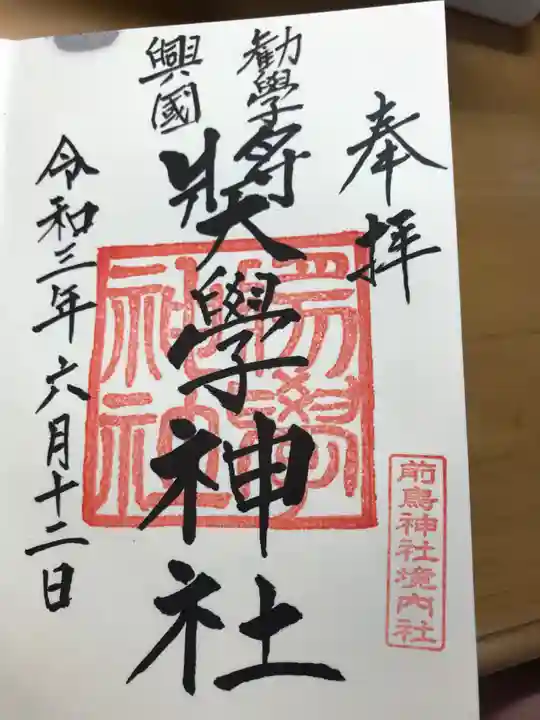 奉拝
勸學
興國
奬學神社
令和三年六月十二日
前鳥神社境内社